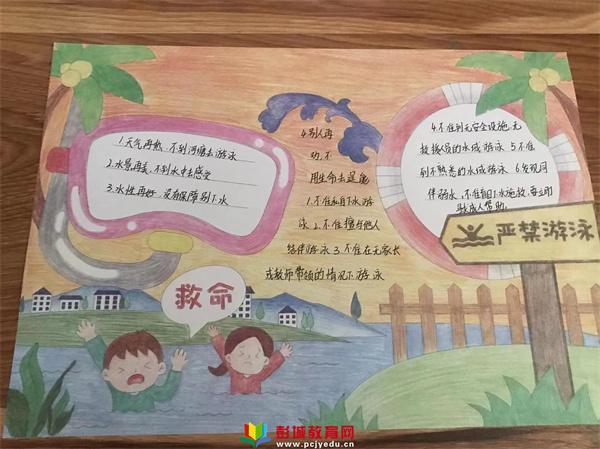 1.天气再热，不到河塘去游泳
2.水景再美，不到水中去感受
3.水性再好，没有保障别下水
4.别人再
劝，不
用生命去逞能
1.不准私自下水游
泳 2.不准擅与他人
结伴游泳 3.不准在无家长
或教师带领的情况下游泳
4.不准到无安全设施、无
救援人员的水域游泳 5.不准
到不熟悉的水域游泳 6.发现同
伴溺水，不准自下水施救，要立即
寻找成人帮助。
严禁游泳
救命
彭城教育网
www.pcjyedu.cn